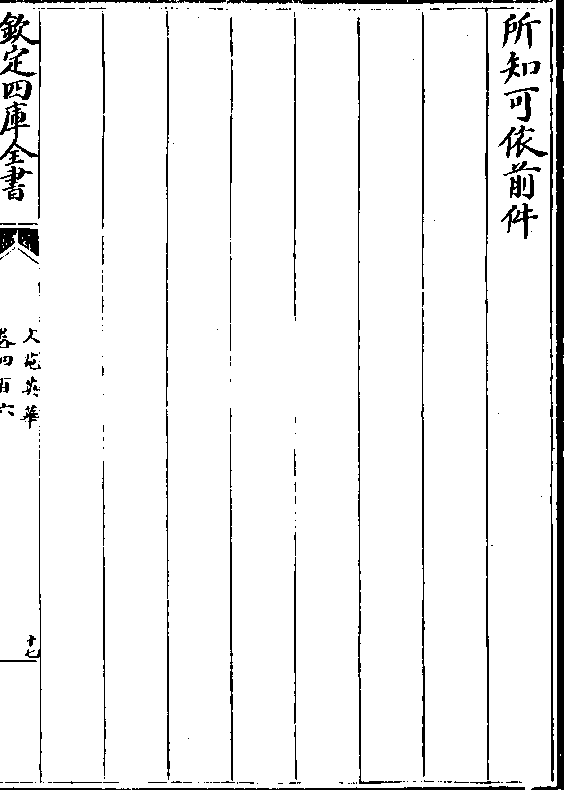 所知可依前件
欽定四庫全書
文苑英華
卷四百六
十七